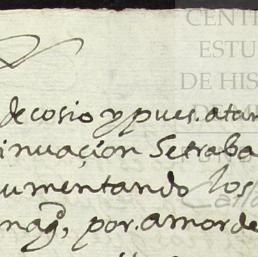 CENT
ESTU
DE HIS
decosio y pues. atan
inuaçion Setraba
umentando los
nag̃, por. amor de